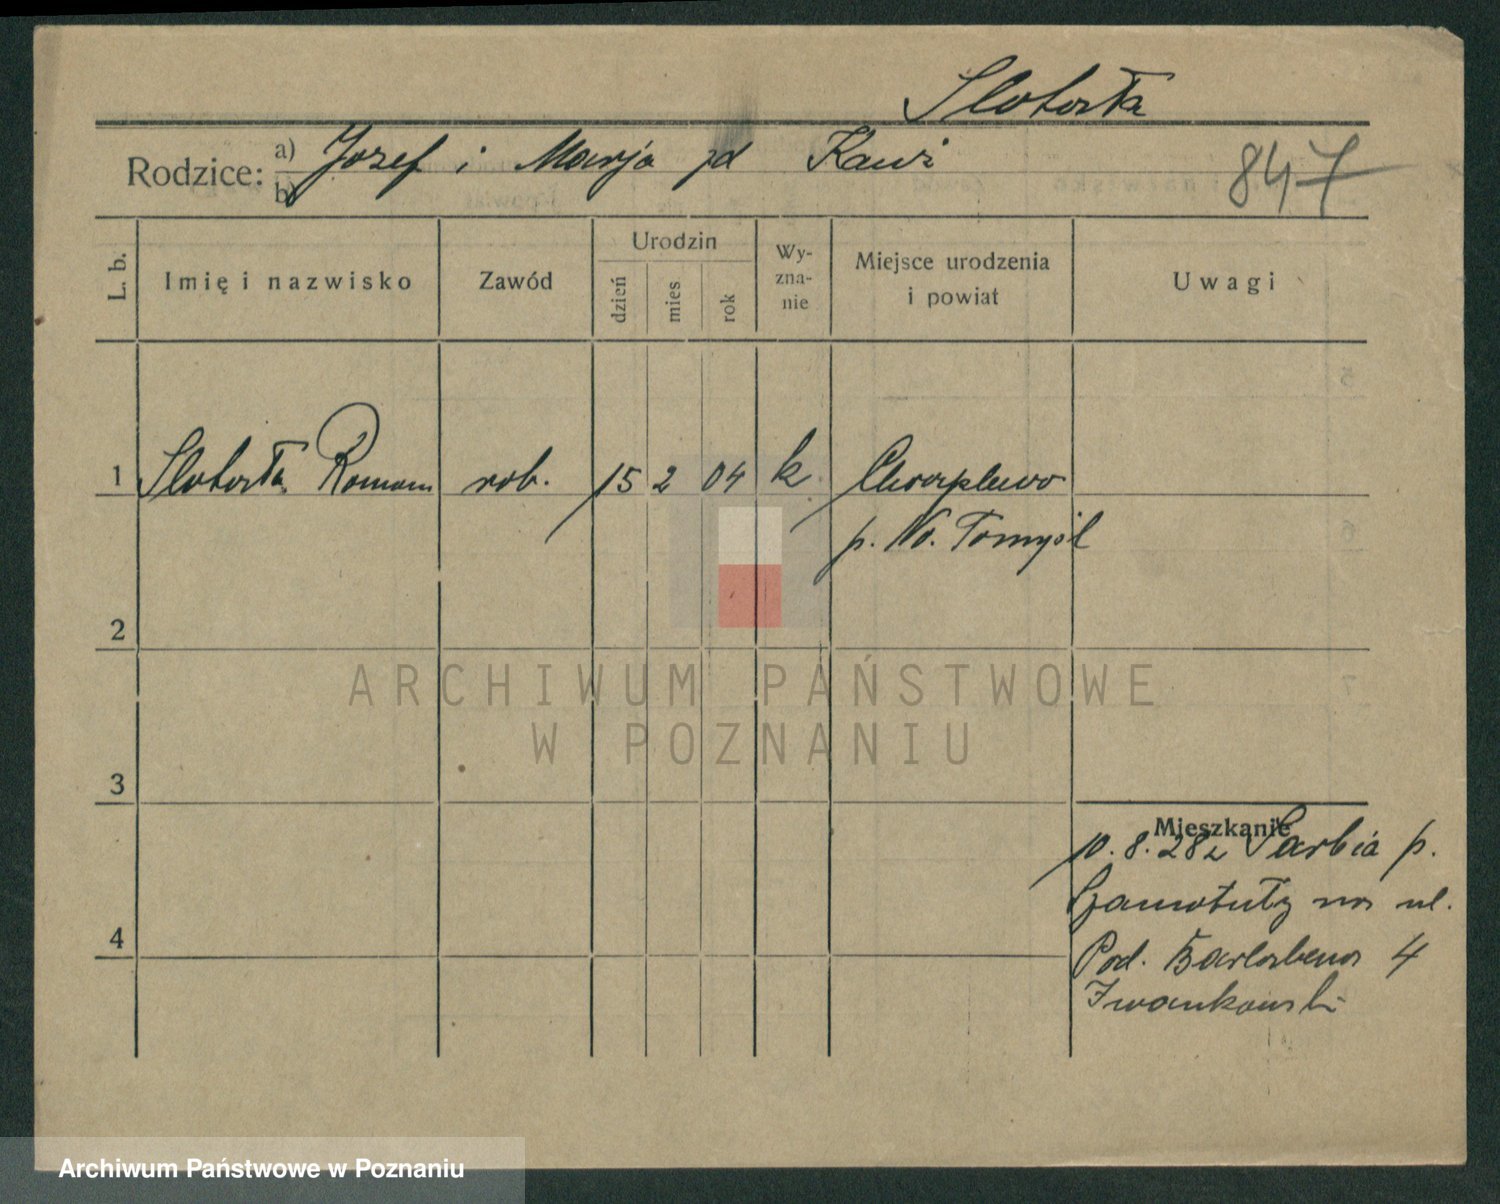 Slotała
Rodzice: a) Jozef i Marja zd Kawi
b)
847
L. b.
Imię i nazwisko
Zawód
Urodzin
dzień
mies
rok
Wy-
zna-
nie
Miejsce urodzenia
i powiat
Uwagi
1 Slotała Roman rob. 15 2 04 k Chraplewo
p. No. Tomyśl
2
3
4
Mieszkanie
10.8.28 z Sarbia p.
Szamotuły na ul.
Pod. 4
Iwankowski
ARCHIWUM PAŃSTWOWE
W POZNANIU
Archiwum Państwowe w Poznaniu